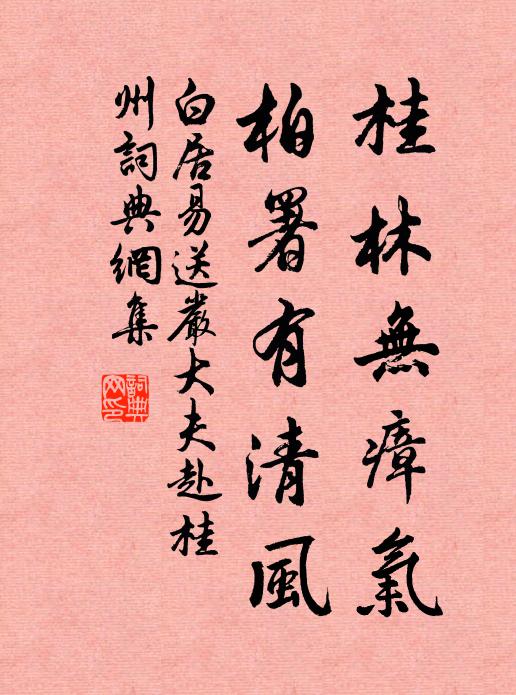 桂林無瘴氣
柏署有清風
白居易送嚴大夫赴桂
州詞典網集
詞典
网印